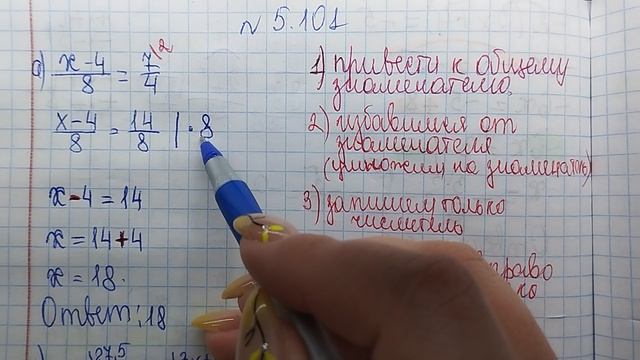 № 5.101
а) x-4/8 = 7/4 \2
x-4/8 = 14/8 | · 8
x-4 = 14
x = 14+4
x = 18.
Ответ: 18
1) привести к общему
знаменателю,
2) избавимся от
знаменателя
(умножему на знаменатель)
3) запишем только
числитель
право